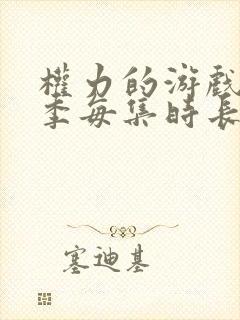 權力的游戲
季每集時長
塞迪基